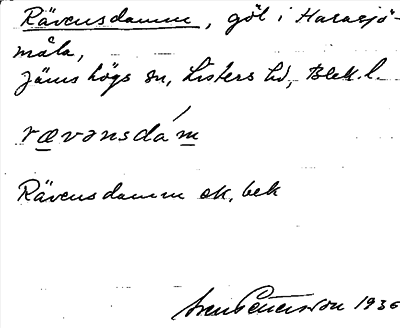 Rävensdamm, göl i Harasjö-
måla,
Jämshögs sn, Listers hd, Blek. l.
rævənsdám
Rävensdamm ek, bek
Sven Petersson 1936